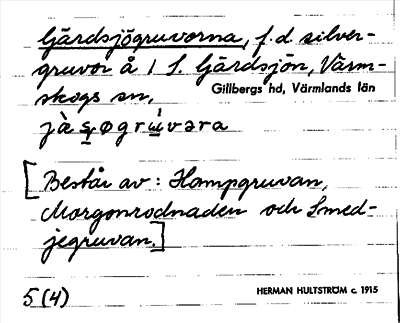 Gärdsjögruvorna, f.d. silver-
gruvor å 1 S. Gärdsjön, Värm-
skogs sn,
Gillbergs hd, Värmlands län
[Består av: Hampgruvan,
Morgonrodnaden och Smed-
jegruvan.]
5 (4)
HERMAN HULTSTRÖM c. 1915